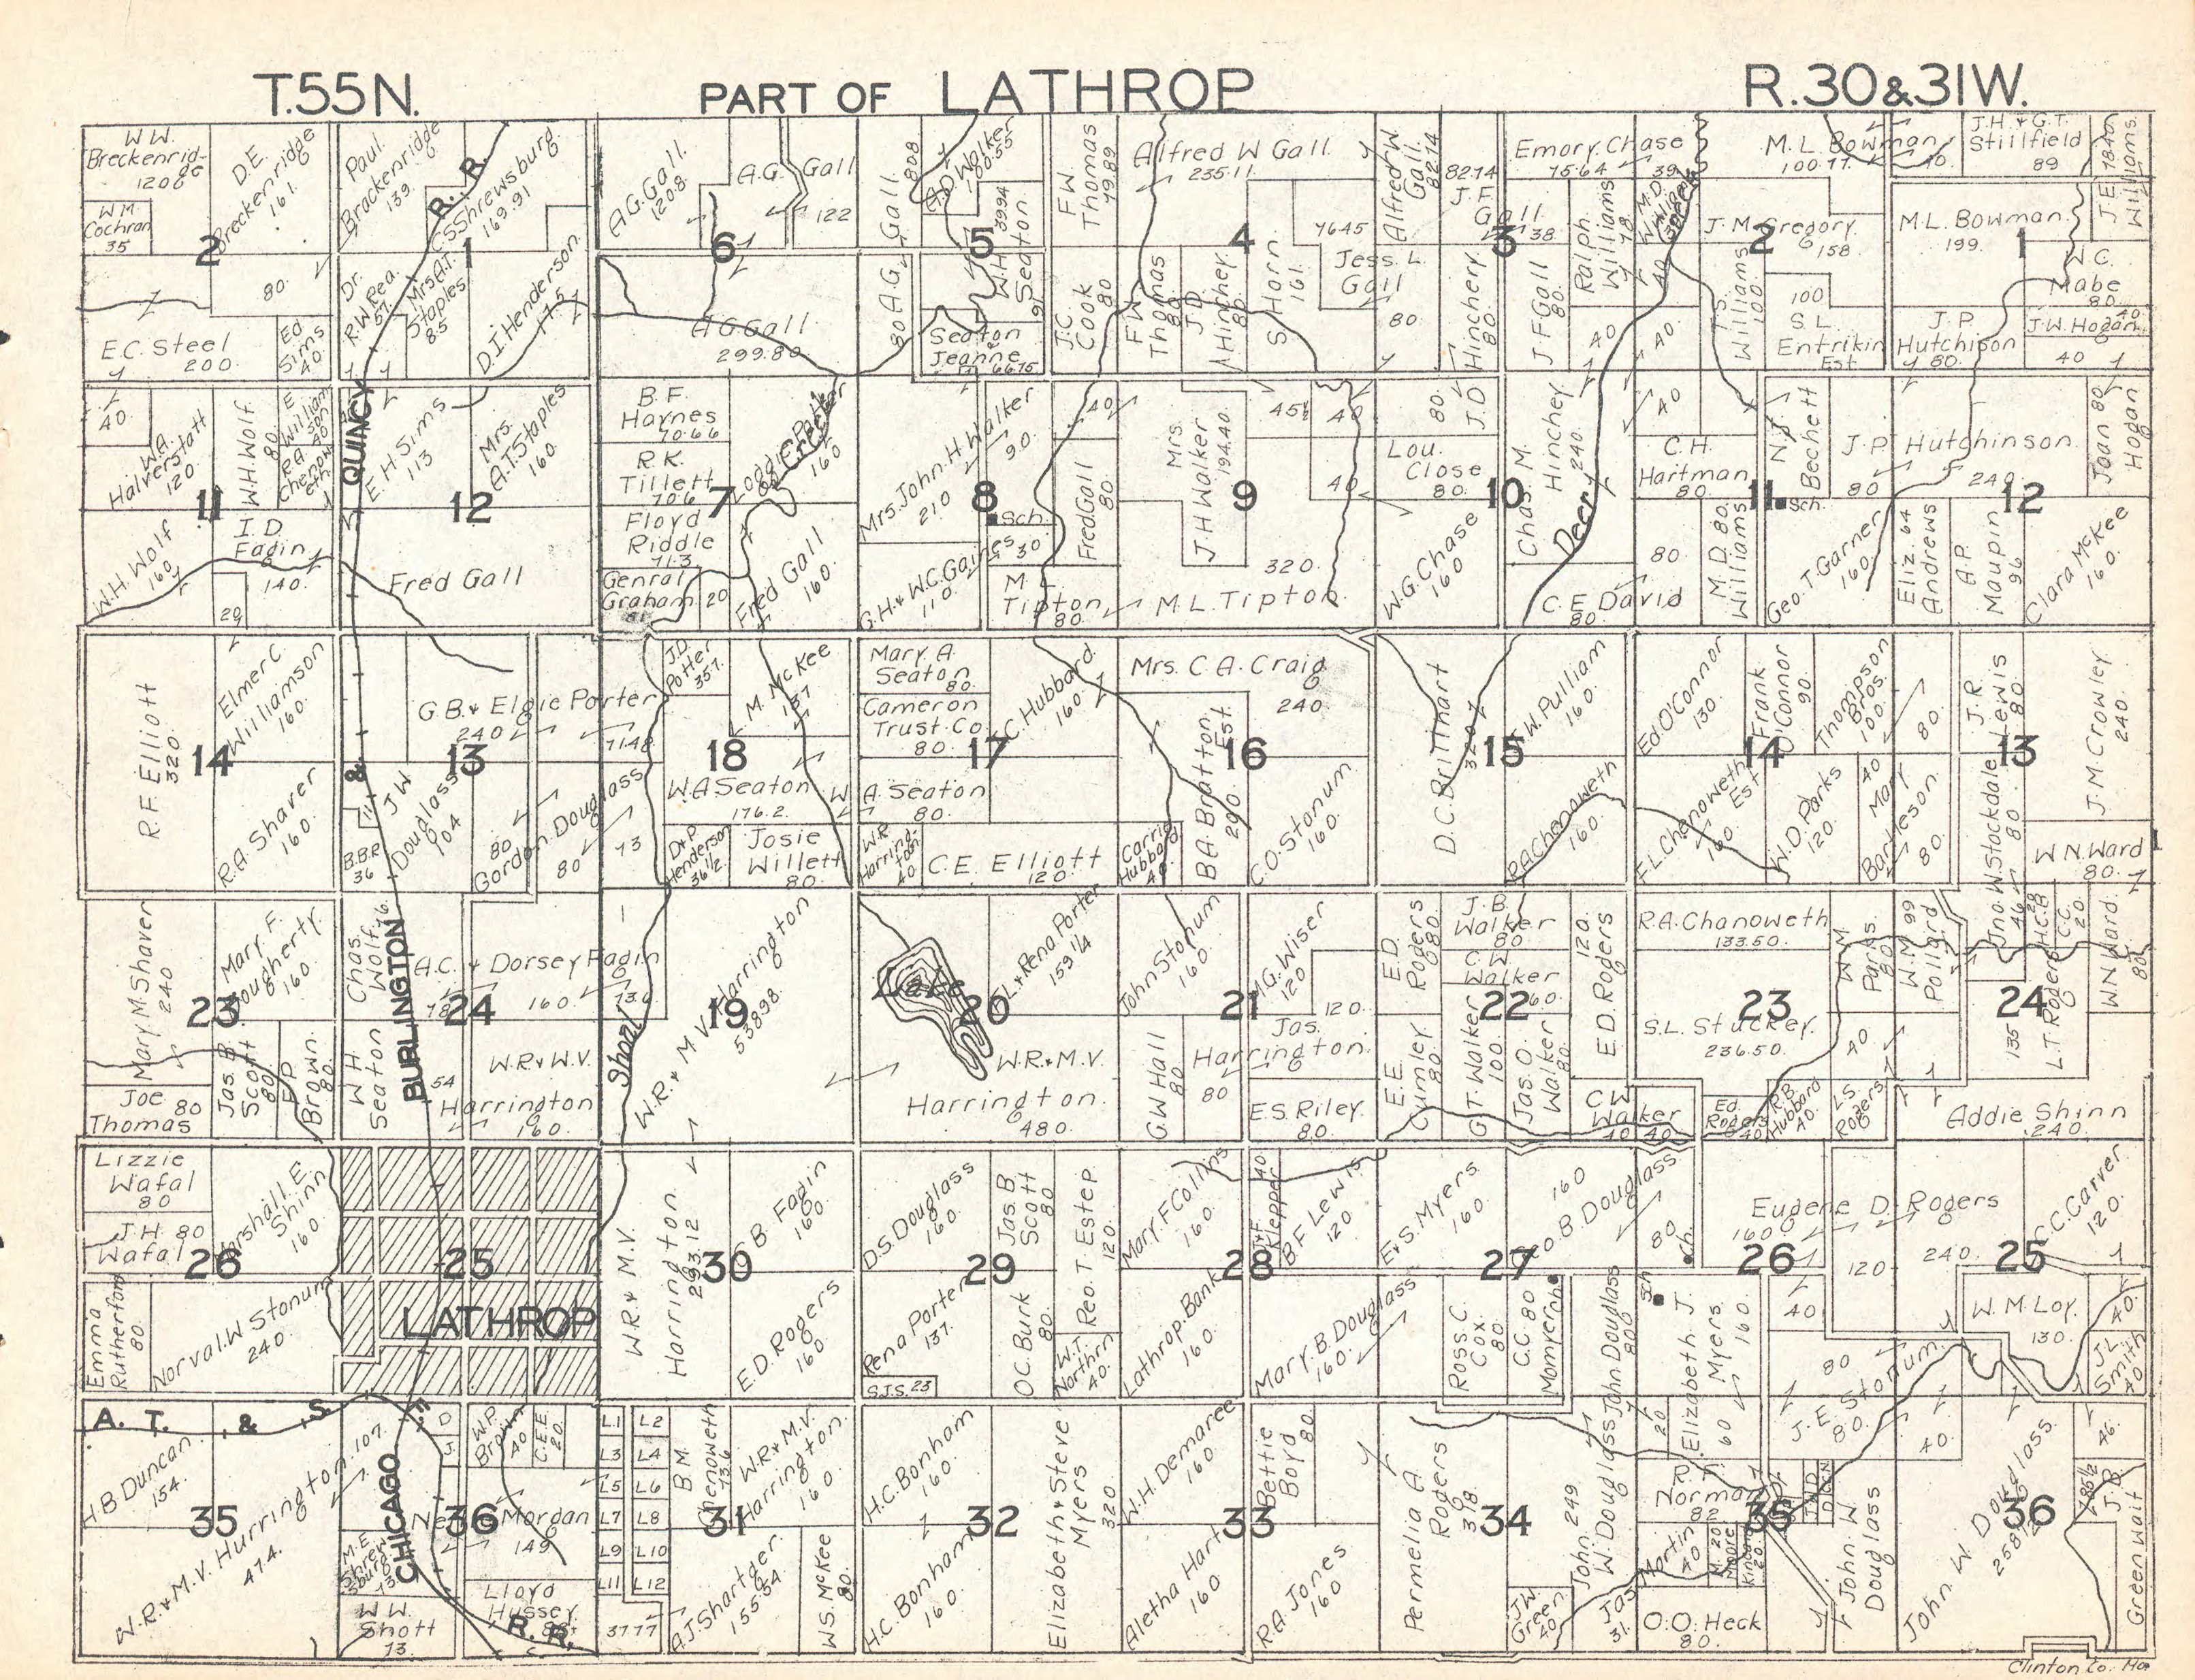 T.55N. PART OF LATHROP R.30&31W.
W.W.
Breckenrid-
ge
120
W M
Cochran
35
D.E.
Breckenridge
161.
2
80.
E.C. Steel
200.
Ed
Sims
40.
Paul.
Brackenridge
139.
R. R.
C.S Shrewsburg
169.91
1
Dr.
R.W. Rea.
57.
Mrs A.T.
Staples
85
D.I. Henderson
175
A.G. Gall.
120.8.
A.G. Gall
122
6
A.G Gall
299.80
80 A.G. Gall. 808
A.D Walker
80.55
5
W.H. 39.94
Seaton.
91
Seaton
&
Jeanne
66.75
F.W.
Thomas
79.89
J.C.
Cook
80
Alfred W Gall.
235.11.
4
F.W.
Thomas
80.
J D
Hinchey
80.
S. Horn
161.
76.45
Jess. L.
Gall
80
Alfred W.
Gall.
82.74
82.74
J. F.
Gall.
38.
3
J. D Hinchery
80.
J.F Gall
80.
Emory Chase
75.64
39.
Ralph.
Williams
78.
M.D.
Williams
40
40
40
M.L. Bowman
100.77.
40.
J.M. Gregory.
158
2
T.S.
Williams
100.
100
S.L.
Entrikin
Est
J.H. & G.T.
Stillfield
89
J.E. 184.0
Williams.
M.L. Bowman.
199.
1
W.C.
Mabe
80.
J.P.
Hutchison
80.
40.
J.W. Hogan
40
40
W.A.
Halverstatt
120.
11
W.H. Wolf.
80
E
William
son
40
R.A.
Chenow
eth
W.H. Wolf
160.
I. D.
Fagin
140.
20
QUINCY
E.H. Sims
113
12
Mrs.
A.T. Staples
160.
Fred Gall
B. F.
Haynes
70.66
R. K.
Tillett
70.6
7
Floyd
Riddle
71.3
Genral
Graham 20
160
Creek
Fred Gall
160.
Mrs. John. H. Walker
210
90.
8
Sch.
G.H. & W.C. Gaines
110.
30
M. L.
Tipton
80.
40
Fred. Gall
80
Mrs.
J H Walker
194.40.
45½
40
40
9
320.
M.L. Tipton.
80.
Lou.
Close
80
10
W.G. Chase
160
Chas. M. Hinchey
240.
Deer
C.E. David
80.
40
C.H.
Hartman
80.
11
Sch.
80
M.D. 80.
Williams
N.J.
Bechett
80
Geo. T. Garner
160.
J.P. Hutchinson.
240
12
Joan 80
Hogan
Eliz. 64
Andrews
A.P.
Maupin
96
Clara McKee
160.
R.F. Elliott
320.
14
Elmer C.
Williamson
160.
R.A. Shaver
160.
&
G.B. & Elgie Porter
240
71.48
13
J W
Douglass
104
B.B.R
36
80
Gordon. Douglass
80
73
J.D.
Potter
35.7.
L. M. McKee
137
18
W.A Seaton
176.2.
D & P
Henderson
36½
Josie
Willett
80.
Mary. A.
Seaton
80.
Cameron
Trust Co
80.
17
W A. Seaton
80.
W.R.
Harring-
ton.
40
C.E. Elliott
120.
C. Hubbard.
160.
Mrs. C A. Craig
240.
16
B A. Bratton
Est.
290.
Carrie
Hubbard
40.
C.O. Stonum
160.
D.C. Brillhart
320.
15
F.W. Pulliam
160.
R A Chenoweth
160.
Ed. O'Connor
130
Frank
O'Connor
90.
14
F.L. Chenoweth
Est
160.
W.D. Parks
120.
Thompson
Bros.
100.
80.
40
Mary
Barkleson
80.
J.R.
Lewis
80
13
Jno. W Stockdale
80
46
J.M Crowley.
240.
W N. Ward
80.
Mary M. Shaver
240
23
Mary. F.
Dougherty.
160.
Joe
Thomas
80
Jas. B.
Scott
80
E.P.
Brown.
80.
Chas.
Wolf.
16.
BURLINGTON
W H
Seaton
A.C. & Dorsey Fagin
78 160. 73.6
24
54
W.R. & W.V.
Harrington
160.
Shoal
W.R. & M.V. Harrington
538.98.
19
Lake
20
F.L. & Rena Porter
159¼
W.R. & M.V.
Harrington.
480.
John Stonum
160.
21
G.W Hall
80
M.G. Wiser
120
120.
Jas.
Harrington.
80
E.S. Riley.
80.
E.D.
Rogers
80.
E.E.
Gumley
80.
J.B.
Walker
80
C.W.
Walker
60.
22
G.T. Walker
100.
Jas. O.
Walker
80.
120.
E.D. Rogers
C.W
Walker
40 40
R.A. Chanoweth
133.50.
23
S.L. Stuckey.
236.50.
Ed.
Rogers
40
R.B.
Hubbard
40.
W M
Parks.
80
40
L.S.
Rogers
W.M 99
Pollard
24
H.C.B
20
C.C.
20.
135
L.T. Rogers
W.N Ward.
80
Addie Shinn
240.
Lizzie
Wafal
80
J.H. 80
Wafal
26
Marshall E.
Shinn
160.
Emma
Rutherford
80
Norval. W Stonum
240.
25
LATHROP
W.R. & M.V.
Harrington.
293.12
30
C.B. Fagin
160.
E.D. Rogers
160
D.S. Douglass
160.
29
Jas. B
Scott
80
Reo. T. Estep.
120.
Rena Porter
137.
S.J.S. 23
O.C. Burk
80.
W.T.
Northrn
40.
Mary. F Collins
160.
28
J & F
Klepper
40
B F Lewis
120
Lathrop. Bank
160.
Mary. B. Douglass
160.
E & S. Myers
160.
27
Ross. C.
Cox.
80.
C.C. 80
Momyer ch.
160
Geo. B. Douglass.
80
ch.
Sch
John Douglass
800
Eugene D. Rogers
160
120
240.
26
Elizabeth J.
Myers.
160.
40
80
J.E. Stonum.
80.
25
C.C. Carver
120.
W. M. Loy.
130.
40
J.L.
Smith
40
A. T. & S. F.
H.B Duncan.
154.
35
W.R. & M.V. Hurrington. 107.
474.
CHICAGO
M.E.
Shrews
burg
73
W W.
Shott
73.
D
J.
W.P.
Brown
40
C.E.E.
20.
36
Nettie Mordan
149
Lloyd
Hussey
R. R.
L1 L2
L3 L4
L5 L6
L7 L8
L9 L10
L11 L12
37.77
B M.
Chenoweth
73.6
31
W.R. & M.V.
Harrington.
160.
A.J. Shartder.
155.54
W.S. McKee
80.
H.C. Bonham
160.
32
H.C. Bonham
160.
Elizabeth & Steve
Myers
320
W.H. Demaree
160
Aletha Hart
160
33
Bettie
Boyd
80.
R.A. Jones
160
Permelia A.
Rogers
318.
34
J.W
Green.
40
John. 249
W. Douglass
Jas. Martin
31. 40
20
60
R. T.
Norman
82
M. 20
Moore
Kincaid
20.
O.O. Heck
80.
35
John. W
Douglass
40.
John W. Douglass.
258
36
46.
J.B.
Greenwait
Clinton Co. Mo.